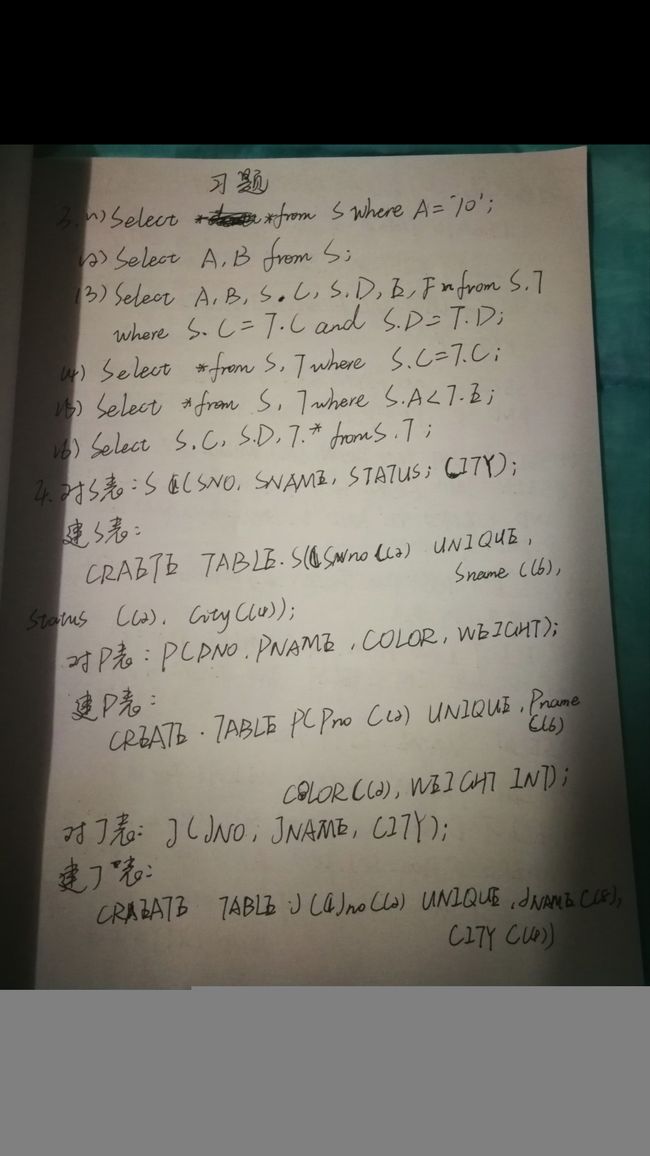 习题
3.(1) Select * *from S where A='10';
(2) Select A,B from S;
(3) Select A,B,S.C,S.D,E,F from S.T
where S.C=T.C and S.D=T.D;
(4) Select *from S,T where S.C=T.C;
(5) Select *from S,T where S.A<T.E;
(6) Select S.C,S.D,T.* from S.T;
4.对S表:S(SNO,SNAME,STATUS,CITY);
建S表:
CRAETE TABLE.S(Sno C(2) UNIQUE,
Sname C(6),
Status C(2),City C(4));
对P表:P(PNO,PNAME,COLOR,WEIGHT);
建P表:
CREATE.TABLE P(Pno C(2) UNIQUE,Pname
C(6)
COLOR C(2),WEIGHT INT);
对J表:J(JNO,JNAME,CITY);
建J表:
TABLE J(Jno C(2) UNIQUE,JNAME C(8),
CITY C(4))